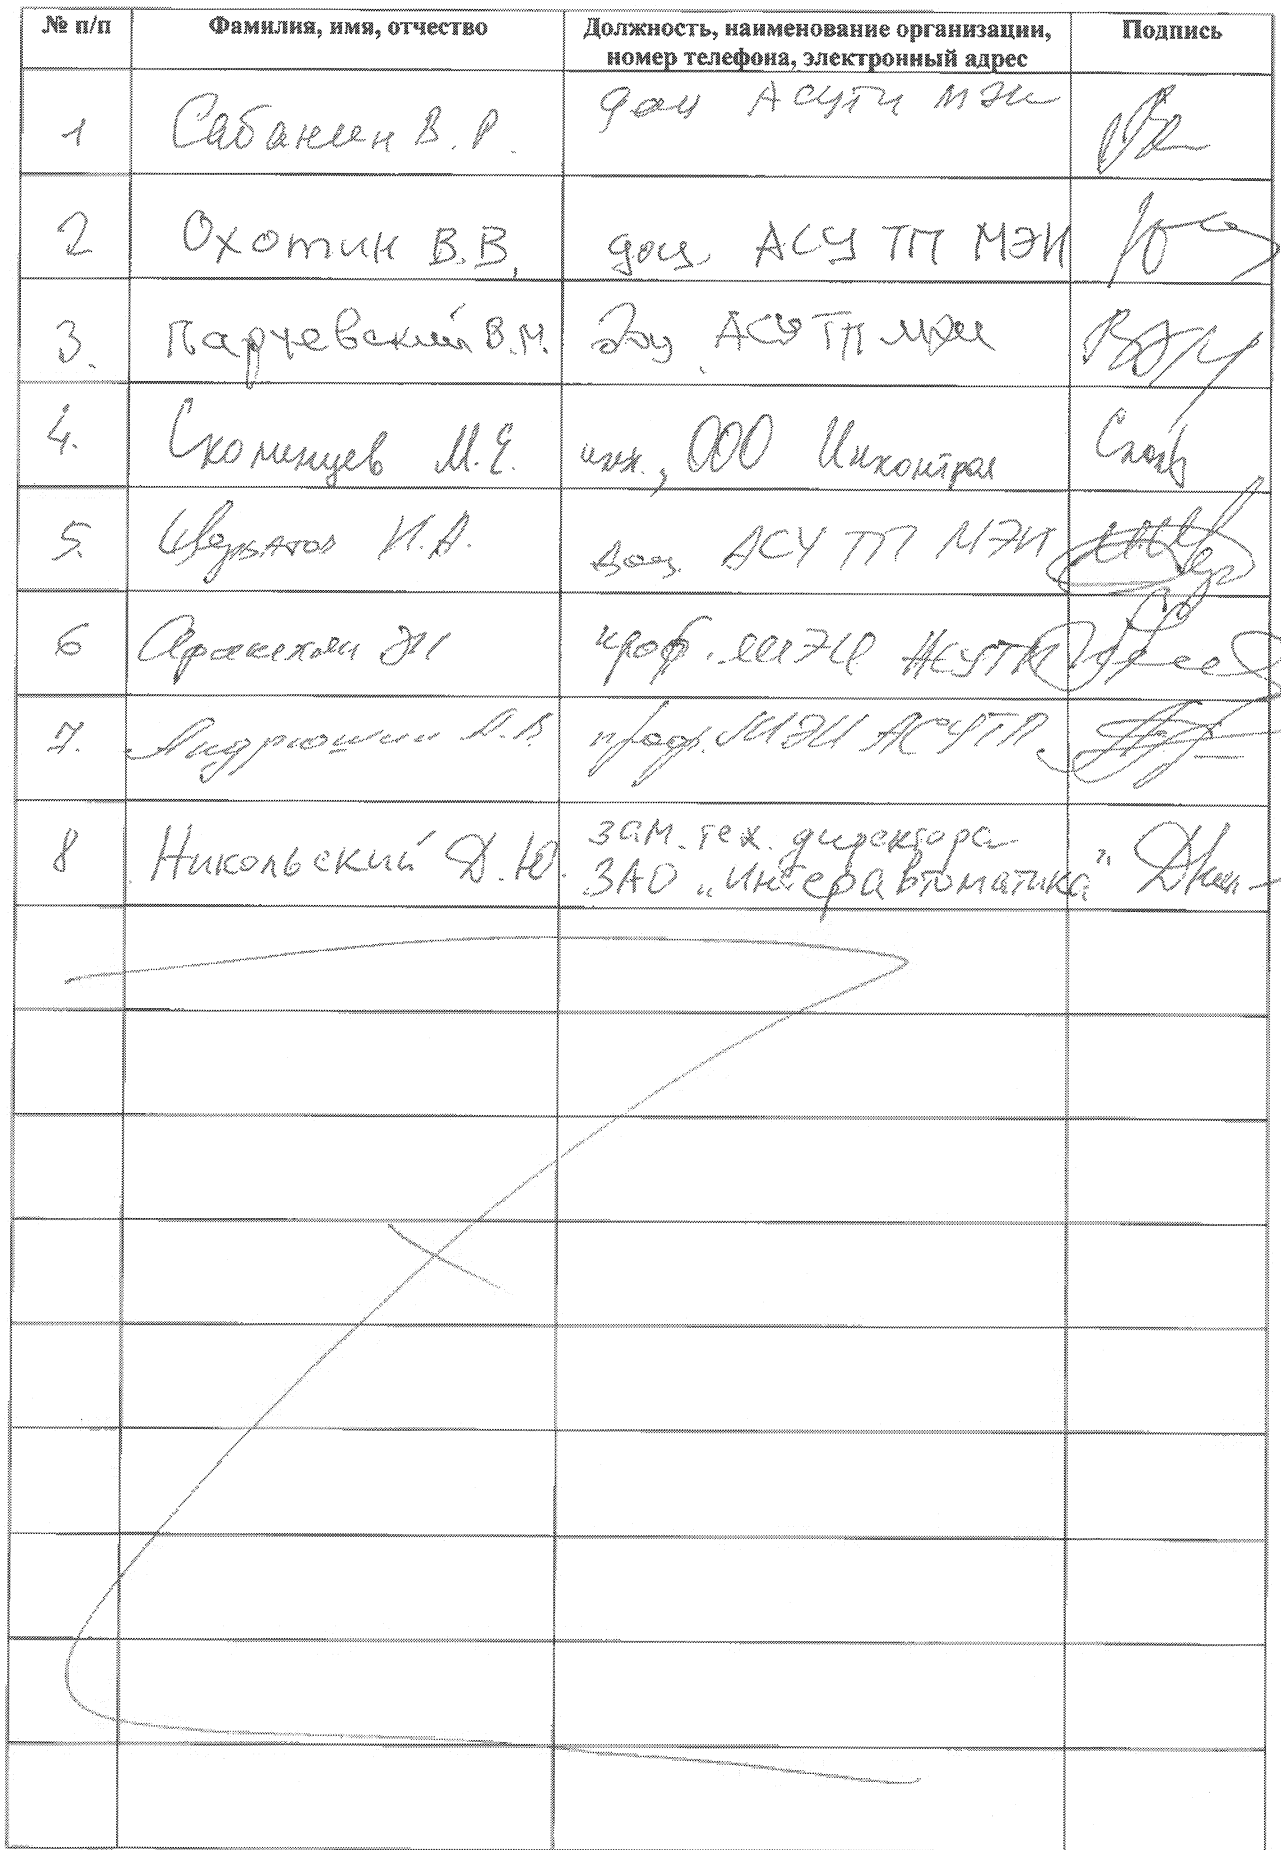 № п/п Фамилия, имя, отчество Должность, наименование организации, Подпись
номер телефона, электронный адрес
1 Сабанин В. Р. доц АСУТП МЭИ
2 Охотин В.В. доц. АСУ ТП МЭИ
3. Парчевский В.М. доц. АСУ ТП МЭИ
4. Скоменцев М.Е. инж., ООО Инконтрол
5. И.А. доц. АСУ ТП МЭИ
6 ЭК проф. МЭИ АСУТП
7. Андрюшин А.В. проф. МЭИ АСУТП
8 Никольский Д.Ю. зам. тех. директора
ЗАО „Интеравтоматика"